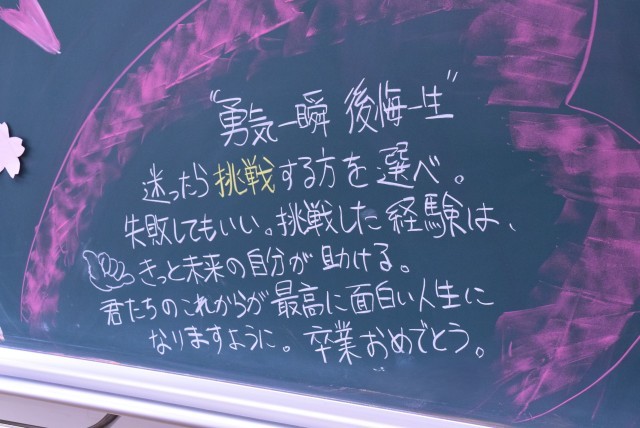 "勇気一瞬 後悔一生"
迷ったら挑戦する方を選べ。
失敗してもいい。挑戦した経験は、
きっと未来の自分が助ける。
君たちのこれからが最高に面白い人生に
なりますように。卒業おめでとう。